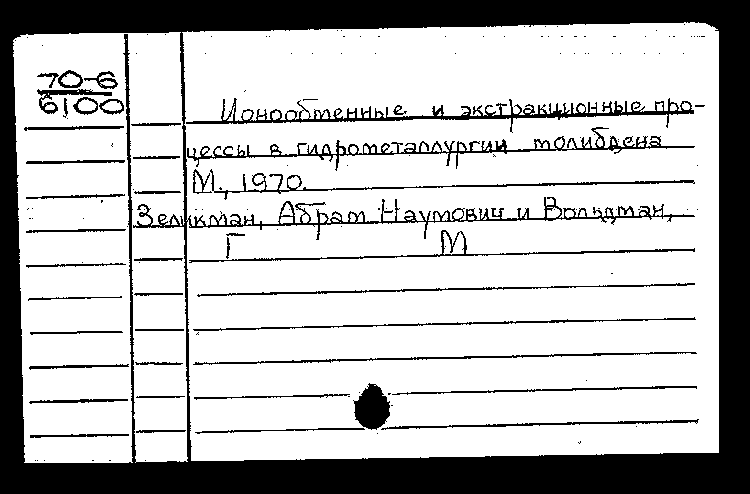 70-6
6100
Ионообменные и экстракционные про-
цессы в гидрометаллургии молибдена
М., 1970.
Зеликман, Абрам Наумович и Вольдман,
Г М